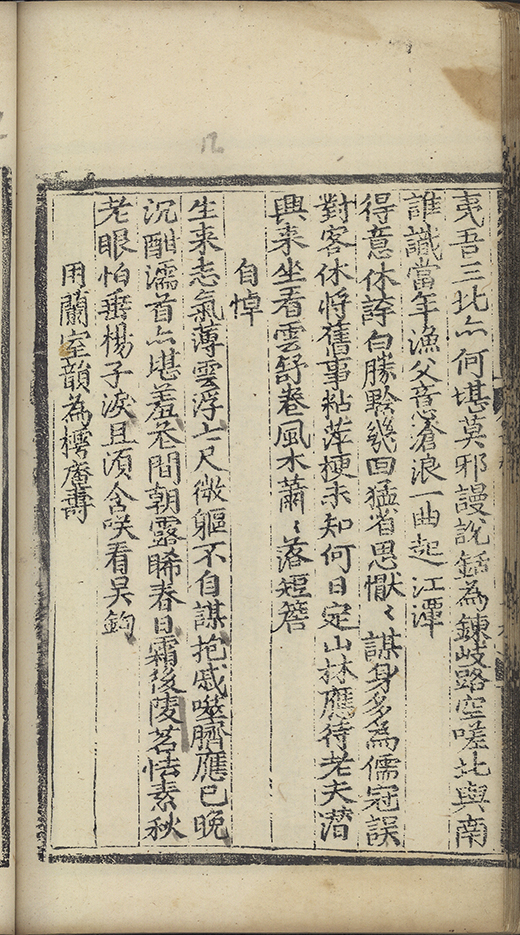 夷吾三北亦何堪莫邪謾說銛為鍊岐路空嗟北與南
誰識當年漁父意滄浪一曲起江潭
得意休誇白勝黔幾回猛省思懨〻謀身多為儒冠誤
對客休將舊事粘萍梗未知何日定山林應待老夫潛
興來坐看雲舒卷風木蕭〻落短簷
自悼
生來志氣薄雲浮六尺微軀不自謀抱戚噬臍應已晚
沉酣濡首亦堪羞間朝露晞春日霜後陵苕怯素秋
老眼怕垂楊子淚且須含咲看吳鉤
用蘭室韻為樗菴壽